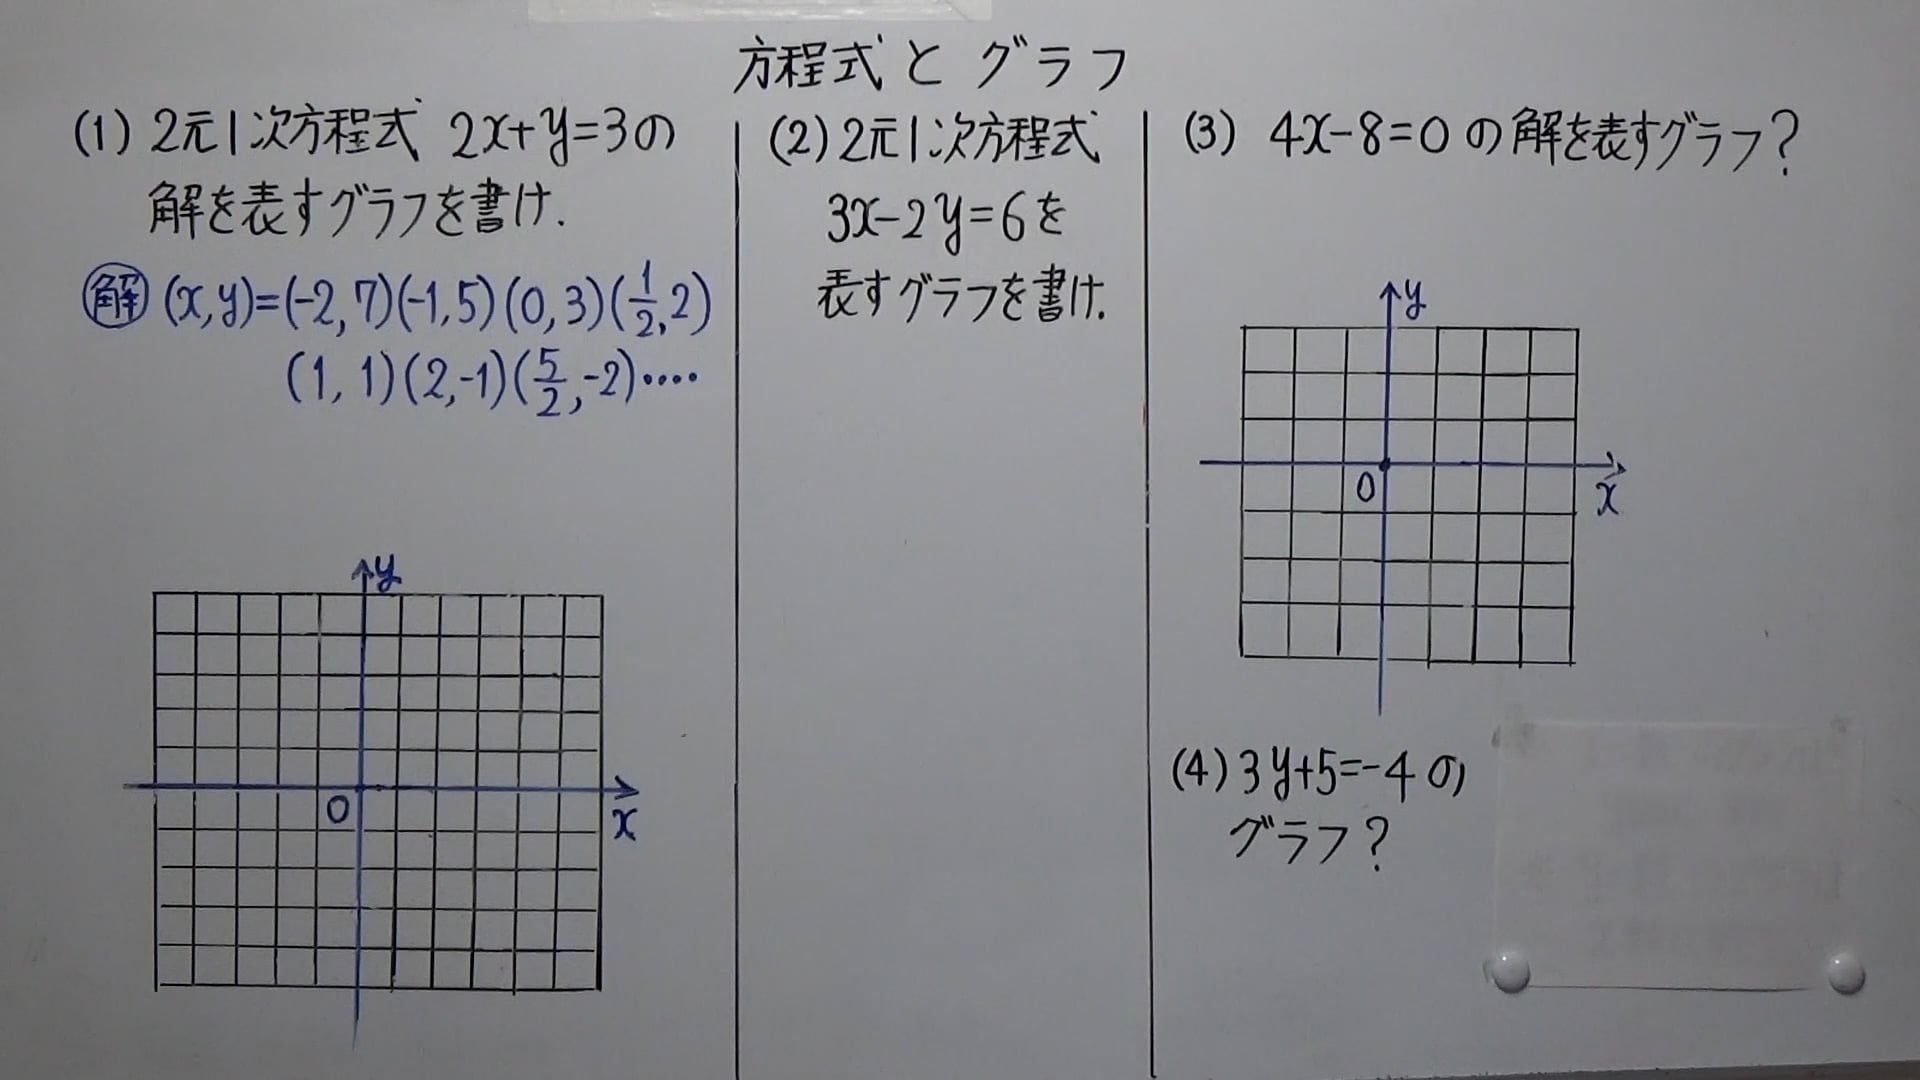 方程式とグラフ
(1) 2元1次方程式 2x+y=3の
解を表すグラフを書け.
解 (x,y)=(-2,7)(-1,5)(0,3)(1/2,2)
(1,1)(2,-1)(5/2,-2)····
y
0
x
(2) 2元1次方程式
3x-2y=6を
表すグラフを書け.
(3) 4x-8=0の解を表すグラフ?
y
0
x
(4) 3y+5=-4の
グラフ?